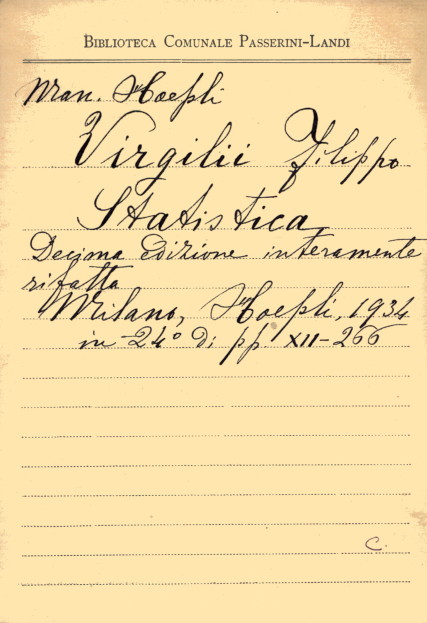 Biblioteca Comunale Passerini-Landi
Man. Hoepli
Virgilii Filippo
Statistica
Decima edizione interamente
rifatta
Milano, Hoepli, 1934
in 24° di pp. XII-266
C.